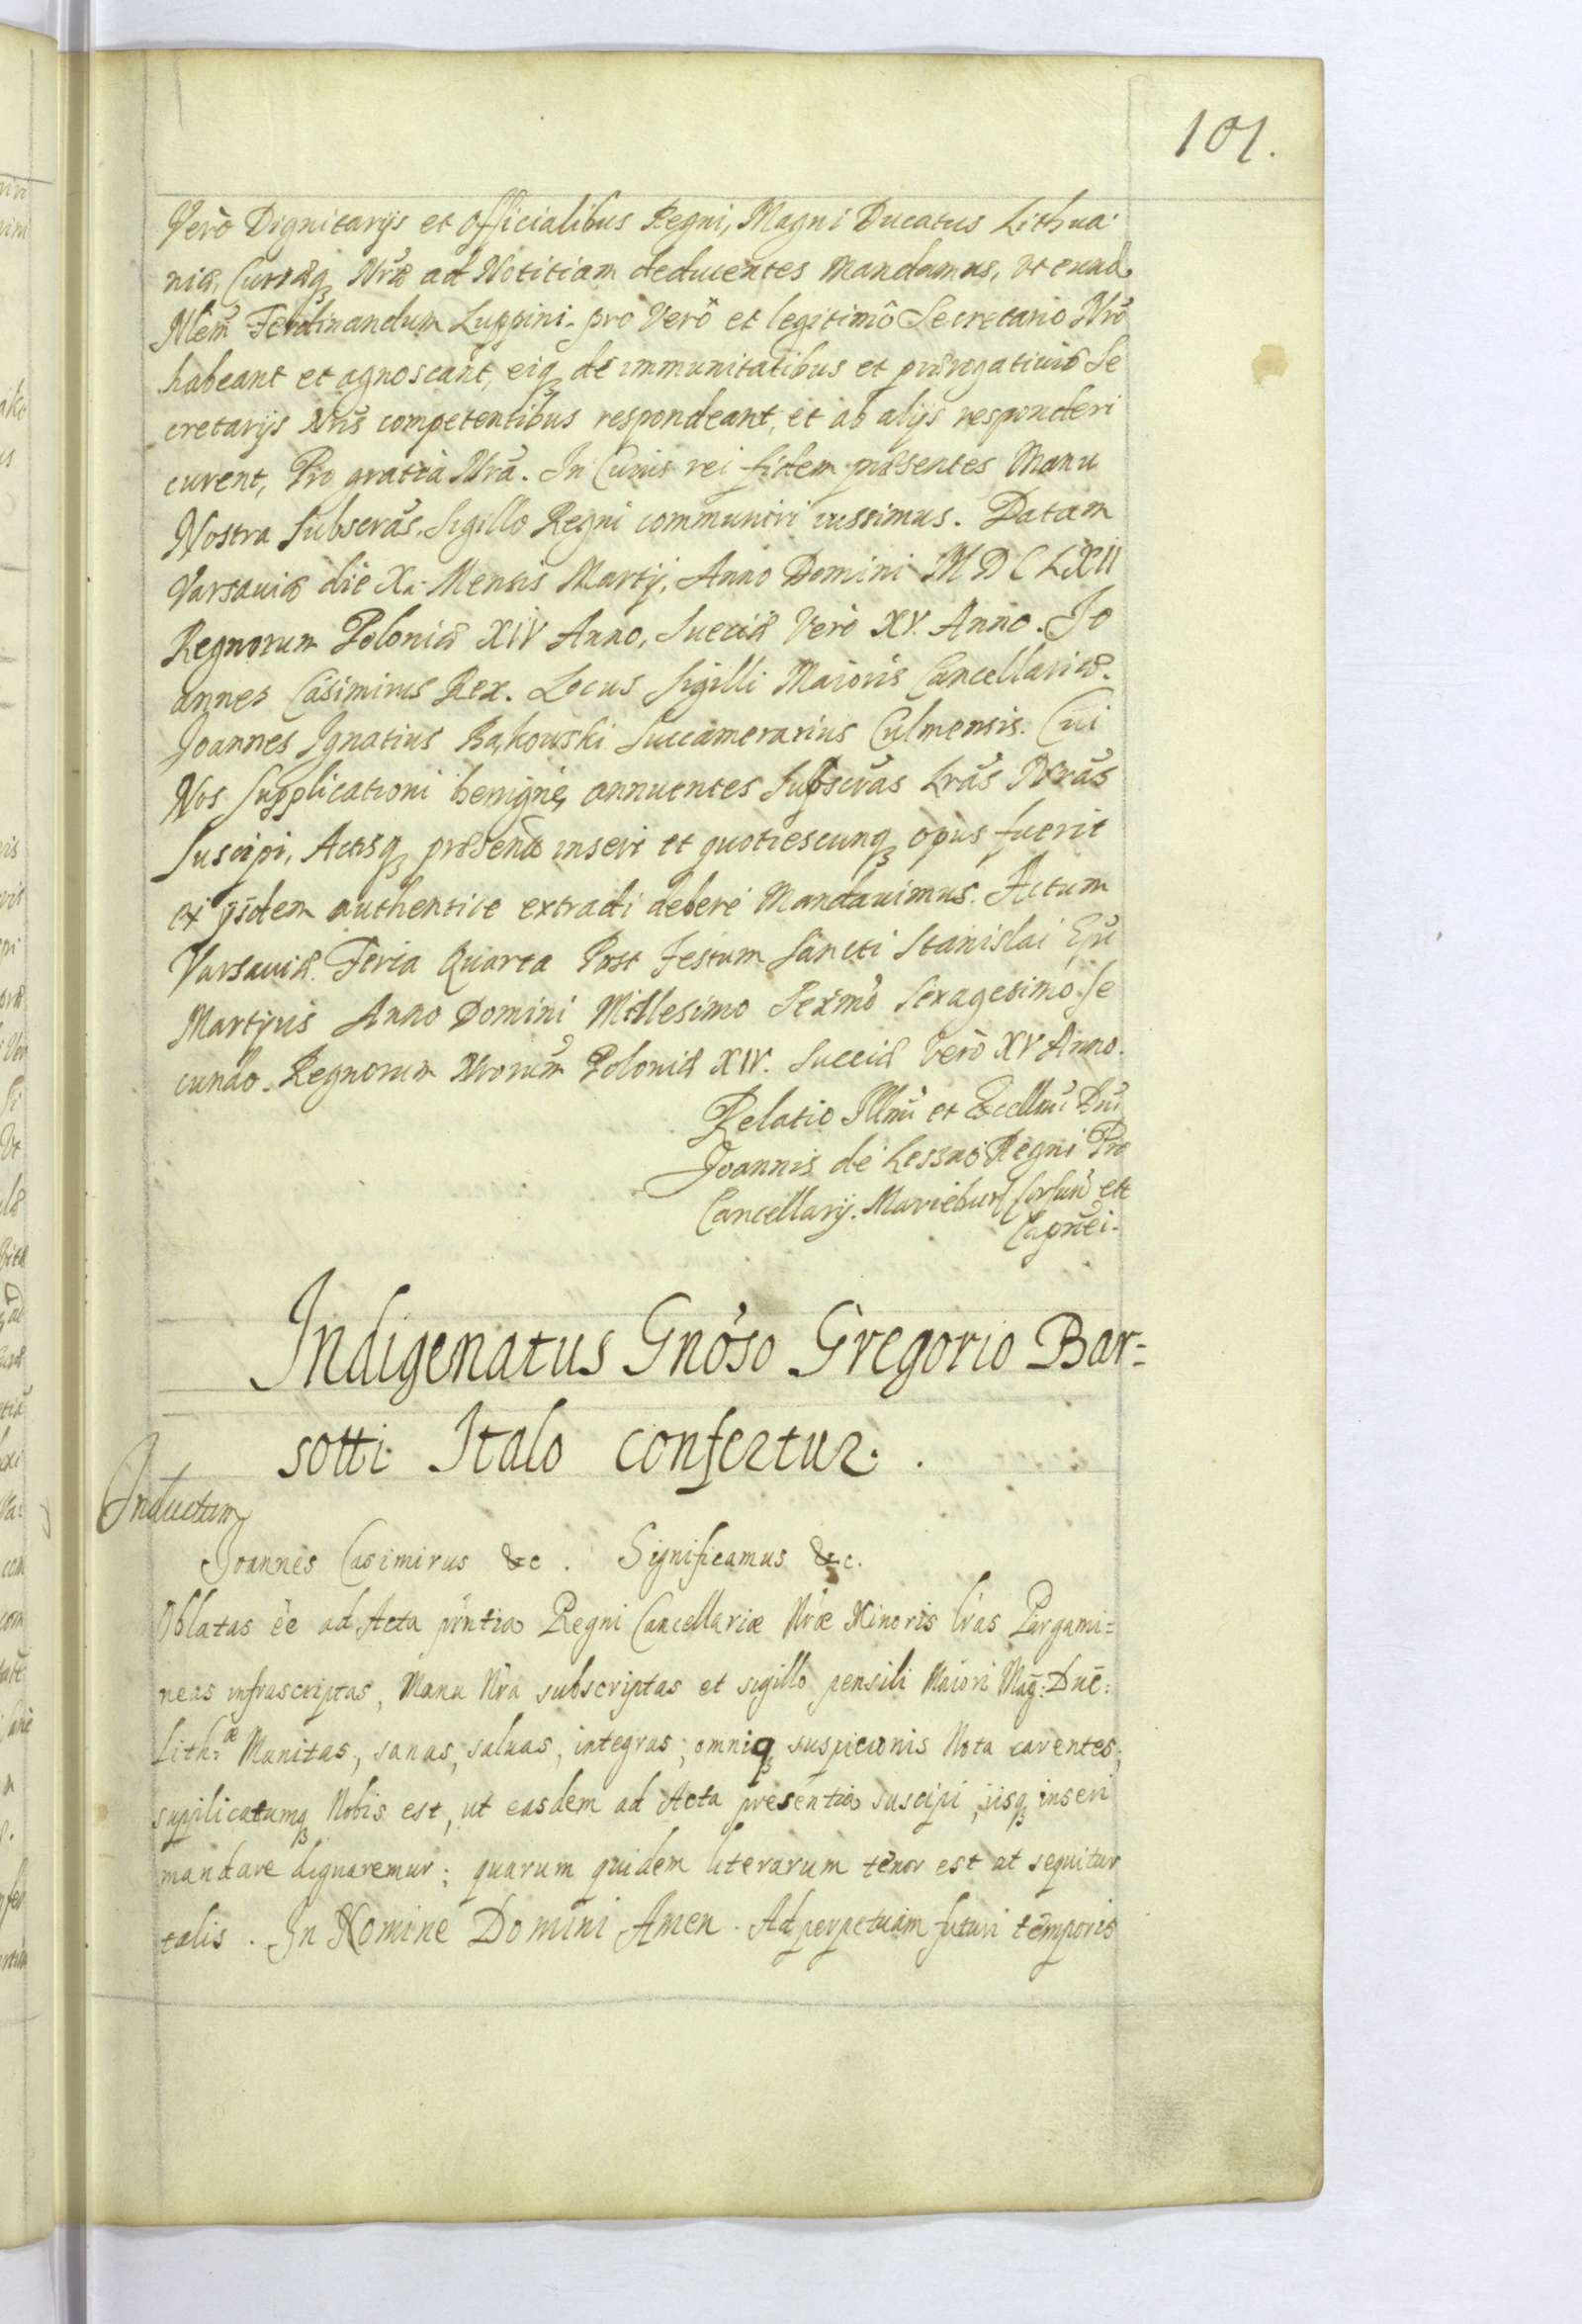 101.
Verò Dignitarijs et Officialibus Regni, Magni Ducatus Lithua-
niæ, Curiæq Nræ ad Notitiam deducentes mandamus, Vt eund.
Nlem Ferdinandum Luppini. pro Verô et legitimô Secretario Nrô
habeant et agnoscant, eiq de immunitatibus et prærogatiuis Se
cretarijs Nris competentibus respondeant, et ab alijs responderi
curent, Pro gratia Nra. In Cuius rei fidem præsentes Manu
Nostra Subscras, Sigillo Regni communiri iussimus. Datam
Varsauiæ die X. Mensis Martij, Anno Domini MDCLXII
Regnorum Poloniæ XIV Anno, Sueciæ Verò XV. Anno. Jo
annes Casimirus Rex. Locus Sigilli Maioris Cancellariæ.
Joannes Ignatius Bąkowski Succamerarius Culmensis. Cui
Nos Supplicationi benignè annuentes Subscras Lras Nras
Suscipi, Actisq præsentibus inseri et quotiescunq opus fuerit
ex ijsdem authentice extradi debere Mandauimus. Actum
Varsauiæ. Feria Quarta Post Festum Sancti Stanislai Epi
Martyris Anno Domini Millesimo Sexmo Sexagesimo Se
cundo. Regnorum Nrorum Poloniæ XIV. Sueciæ Verò XV Anno.
Relatio Illmi et Excellmi Dni
Joannis de Leszno Regni Pro
Cancellarij. Marieburg Corsun etc
Capnei.
Indigenatus Gnóso Gregorio Bar=
sotti Italo confertur.
Inductum
Joannes Casimirus &c. Significamus &c.
Oblatas ee ad Acta pñtia Regni Cancellariæ Nræ Minoris lras Pargami=
neas infrascriptas, Manu Nra subscriptas et sigillo pensili Maiori Mag: Duc:
Lith:æ Munitas, sanas, saluas, integras, omniq suspicionis Nota carentes;
supplicatumq Nobis est, ut easdem ad Acta presentia suscipi, iisq inseri
mandare dignaremur; quarum quidem literarum tenor est ut sequitur
talis. In Nomine Domini Amen. Ad perpetuam futuri temporis